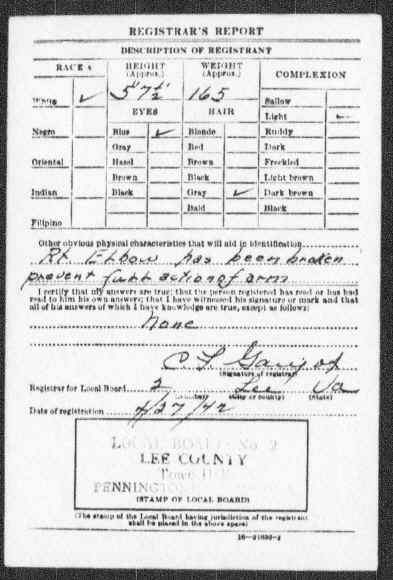 REGISTRAR'S REPORT
DESCRIPTION OF REGISTRANT
RACE 4
HEIGHT (Approx.)
WEIGHT (Approx.)
COMPLEXION
✓ 5' 7½" 165
EYES
HAIR
Sallow
Light ✓
Negro
Blue ✓
Blonde
Ruddy
Gray
Red
Dark
Oriental
Hazel
Brown
Freckled
Brown
Black
Light brown
Indian
Black
Gray ✓
Dark brown
Bald
Black
Filipino
Other obvious physical characteristics that will aid in identification
Rt. Elbow has been broken
prevent full action of arm
I certify that my answers are true; that the person registered has read or has had
read to him his own answers; that I have witnessed his signature or mark and that
all of his answers of which I have knowledge are true, except as follows:
None
C
(Signature of registrar)
Registrar for Local Board 2 Lee Va
(Number) (City or county) (State)
Date of registration 4/27/42
LOCAL BOARD No 2
LEE COUNTY
PENNINGTON
(STAMP OF LOCAL BOARD)
(The stamp of the Local Board having jurisdiction of the registrant
shall be placed in the above space)
16-21630-2